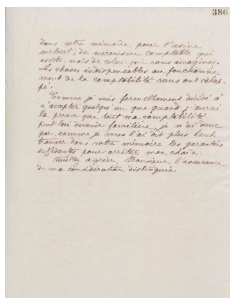 386
dans votre mémoire, pour l'usine
surtout, du mécanisme comptable qui
existe, mais de celui que vous imaginez.
Les choses indispensables au fonctionne-
ment de la comptabilité vous ont échap-
pé.
Comme je suis formellement décidé à
n'accepter quelqu'un que quand j'aurai
la preuve que toute ma comptabilité
peut lui devenir familière, je n'ai
pu, comme je vous l'ai dit plus haut,
trouver dans votre mémoire les garanties
suffisantes pour arrêter mon choix.
Veuillez agréer, Monsieur, l'assurance
de ma considération distinguée.